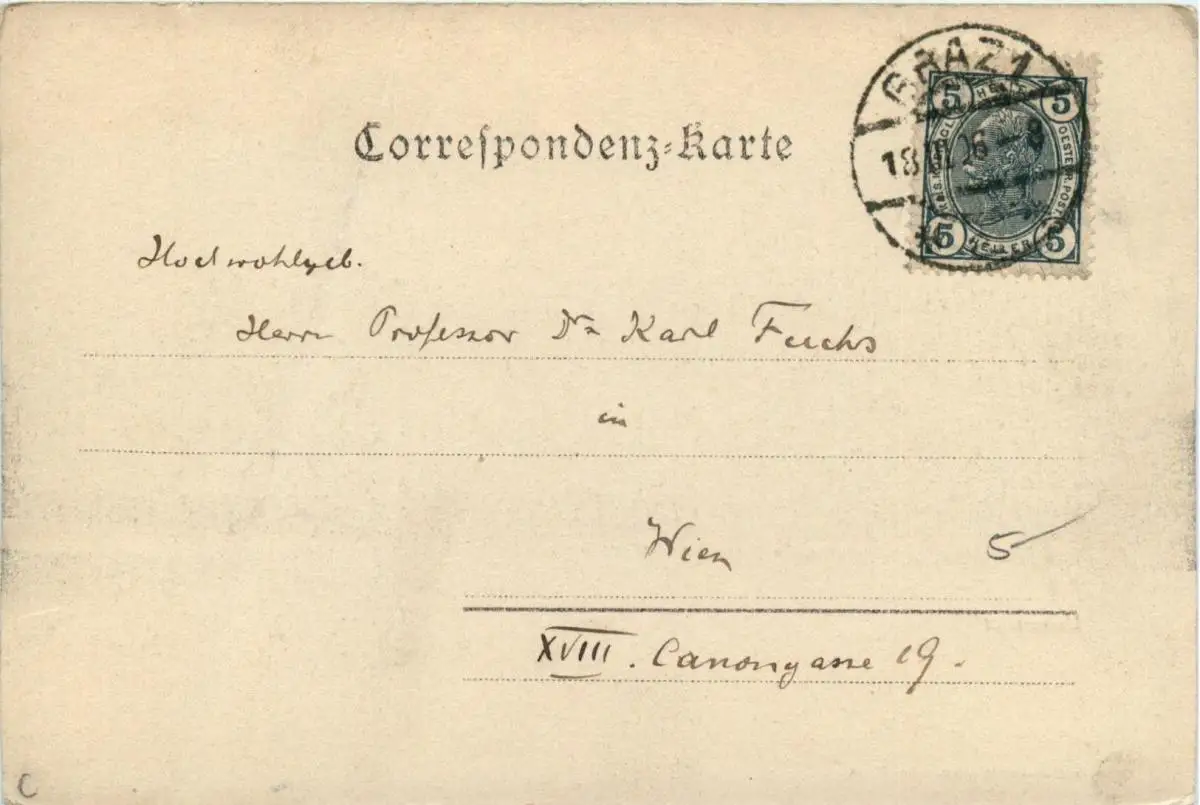 GRAZ 1
5 HELLER 5
OESTERR. POST
5 HELLER 5
Correspondenz-Karte
Hochwohlgeb.
Herrn Professor Dr Karl Fuchs
in
Wien
5
XVIII. Canongasse 19.
C